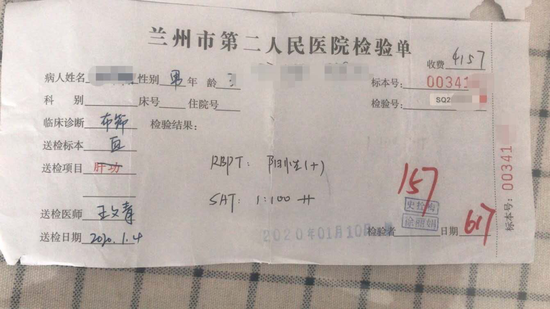 兰州市第二人民医院检验单
收费 4157
病人姓名 性别 男 年龄 3 标本号: 00341
科别 床号 住院号 检验号: SQ2
临床诊断 布鲁 检验结果:
送检标本 血
送检项目 肝功 RBPT: 阳性(+)
SAT: 1:100 ++
157
送检医师 王文青
送检日期 2020.1.4 2020年01月10日 检验者 日期 617
标本号: 00341